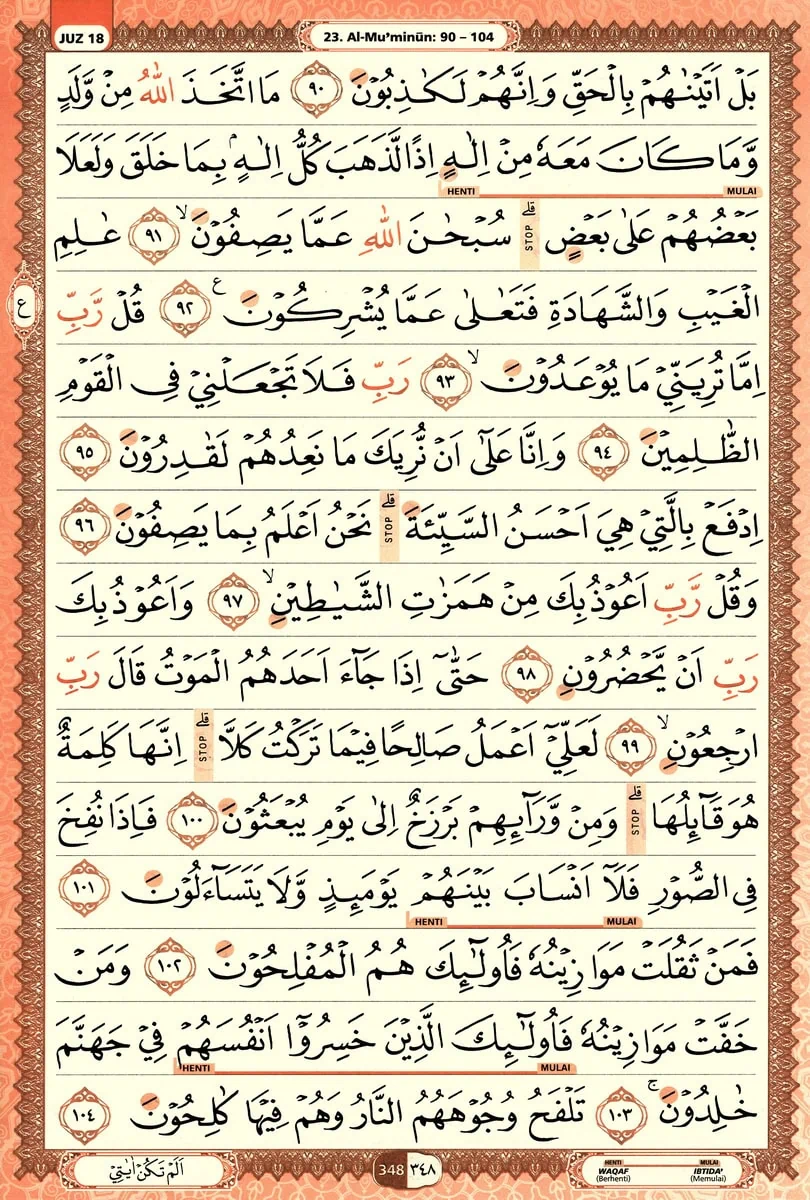 JUZ 18
23. Al-Mu’minūn: 90 – 104
بَلْ اَتَيْنٰهُمْ بِالْحَقِّ وَاِنَّهُمْ لَكٰذِبُوْنَ ٩٠ مَا اتَّخَذَ اللّٰهُ مِنْ وَّلَدٍ
وَّمَا كَانَ مَعَهٗ مِنْ اِلٰهٍ اِذًا لَّذَهَبَ كُلُّ اِلٰهٍۢ بِمَا خَلَقَ وَلَعَلَا
HENTI MULAI
بَعْضُهُمْ عَلٰى بَعْضٍۗ STOP سُبْحٰنَ اللّٰهِ عَمَّا يَصِفُوْنَۙ ٩١ عٰلِمِ
الْغَيْبِ وَالشَّهَادَةِ فَتَعٰلٰى عَمَّا يُشْرِكُوْنَ ࣖ ٩٢ قُلْ رَّبِّ
ع
اِمَّا تُرِيَنِّيْ مَا يُوْعَدُوْنَۙ ٩٣ رَبِّ فَلَا تَجْعَلْنِيْ فِى الْقَوْمِ
الظّٰلِمِيْنَ ٩٤ وَاِنَّا عَلٰٓى اَنْ نُّرِيَكَ مَا نَعِدُهُمْ لَقٰدِرُوْنَ ٩٥
اِدْفَعْ بِالَّتِيْ هِيَ اَحْسَنُ السَّيِّئَةَۗ STOP نَحْنُ اَعْلَمُ بِمَا يَصِفُوْنَ ٩٦
وَقُلْ رَّبِّ اَعُوْذُ بِكَ مِنْ هَمَزٰتِ الشَّيٰطِيْنِۙ ٩٧ وَاَعُوْذُ بِكَ
رَبِّ اَنْ يَّحْضُرُوْنِ ٩٨ حَتّٰىٓ اِذَا جَاۤءَ اَحَدَهُمُ الْمَوْتُ قَالَ رَبِّ
ارْجِعُوْنِۙ ٩٩ لَعَلِّيْٓ اَعْمَلُ صَالِحًا فِيْمَا تَرَكْتُ كَلَّاۗ STOP اِنَّهَا كَلِمَةٌ
هُوَ قَاۤىِٕلُهَاۗ STOP وَمِنْ وَّرَاۤىِٕهِمْ بَرْزَخٌ اِلٰى يَوْمِ يُبْعَثُوْنَ ١٠٠ فَاِذَا نُفِخَ
فِى الصُّوْرِ فَلَآ اَنْسَابَ بَيْنَهُمْ يَوْمَىِٕذٍ وَّلَا يَتَسَاۤءَلُوْنَ ١٠١
HENTI MULAI
فَمَنْ ثَقُلَتْ مَوَازِيْنُهٗ فَاُولٰۤىِٕكَ هُمُ الْمُفْلِحُوْنَ ١٠٢ وَمَنْ
خَفَّتْ مَوَازِيْنُهٗ فَاُولٰۤىِٕكَ الَّذِيْنَ خَسِرُوْٓا اَنْفُسَهُمْ فِيْ جَهَنَّمَ
HENTI MULAI
خٰلِدُوْنَۚ ١٠٣ تَلْفَحُ وُجُوْهَهُمُ النَّارُ وَهُمْ فِيْهَا كٰلِحُوْنَ ١٠٤
اَلَمْ تَكُنْ اٰيٰتِيْ
348 ٣٤٨
HENTI MULAI
WAQAF IBTIDA'
(Berhenti) (Memulai)